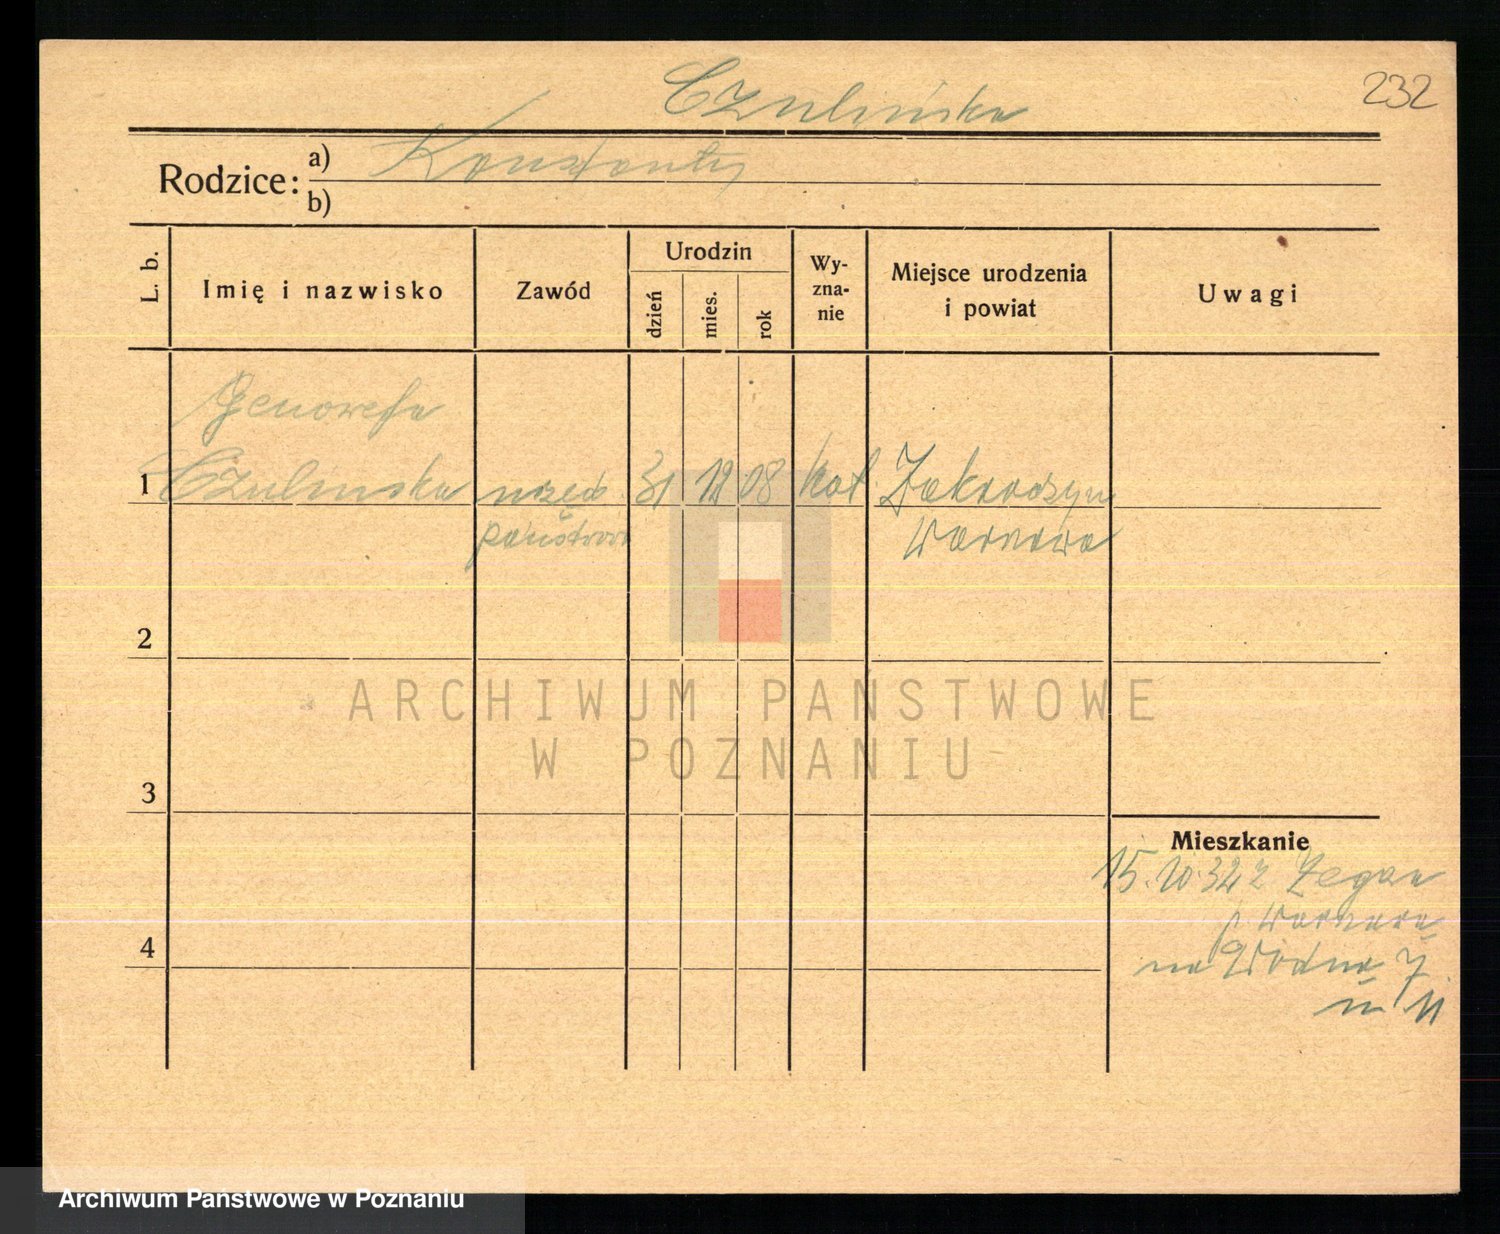 232
Czulińska
Rodzice: a) Konstanty
b)
L. b.
Imię i nazwisko
Zawód
Urodzin
dzień
mies.
rok
Wy-
zna-
nie
Miejsce urodzenia
i powiat
Uwagi
Genowefa
1 Czulinska urzęd. 31 12 08 kat. Zakroczym
państwow Warszawa
2
ARCHIWUM PAŃSTWOWE
W POZNANIU
3
Mieszkanie
15.10.32 z
p Warszawa
4
na Wodna 7
m 11
Archiwum Państwowe w Poznaniu